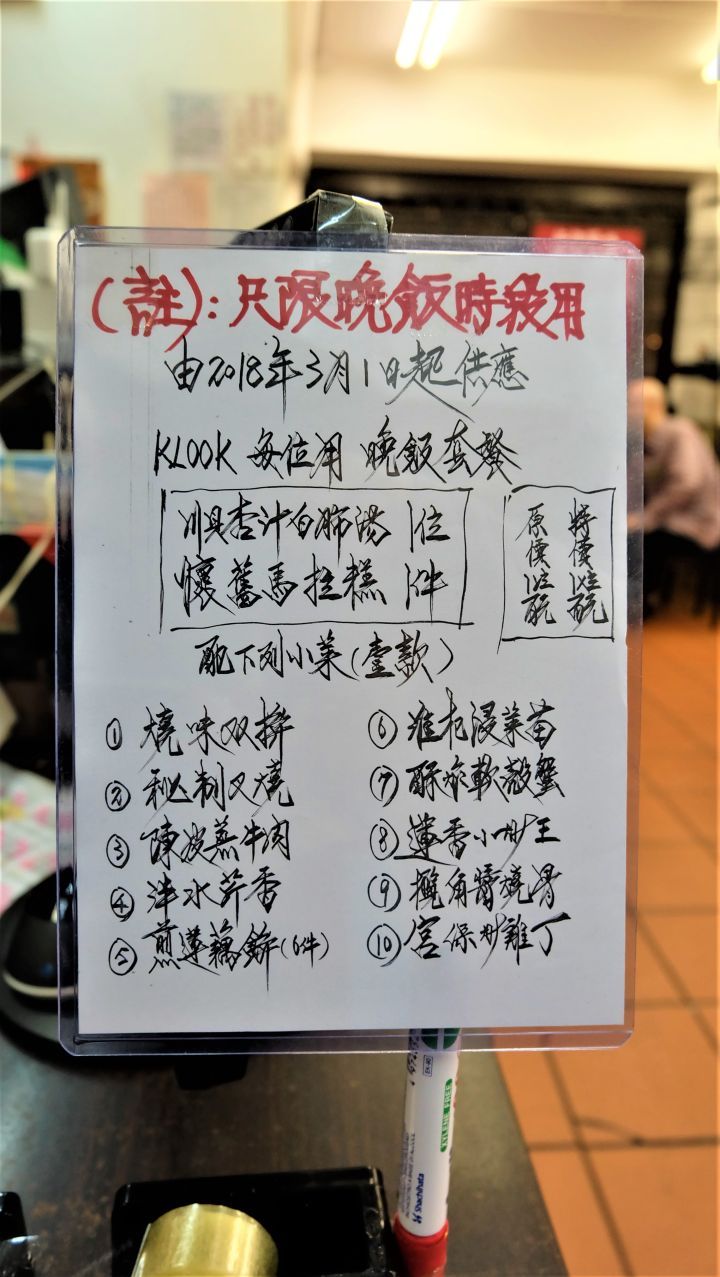 (註): 只限晚飯時段用
由2018年3月1日起供應
KLOOK 每位用 晚飯套餐
杏汁白肺湯 1位
懷舊馬拉糕 1件
原價
特價
配下列小菜(壹款)
① 燒味双拼
② 秘制叉燒
③ 陳皮蒸牛肉
④ 泮水芹香
⑤ 煎蓮藕餅(6件)
⑥ 淮杞浸菜苗
⑦ 酥炸軟殼蟹
⑧ 蓮香小炒王
⑨ 欖角骨
⑩ 宮保炒雞丁
XYLENE FREE
Shachihata